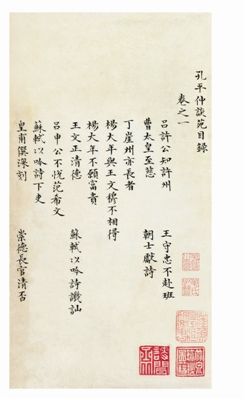 孔平仲談苑目錄
卷之一
呂許公知許州　王守忠不赴班
曹太皇至慈　朝士獻詩
丁崖州亦長者
楊大年與王文穆不相得
楊大年不願富貴
王文正清德　蘇軾以吟詩譏訕
呂申公不悅范希文
蘇軾以吟詩下吏
皇甫僎深刻　崇德長官清否